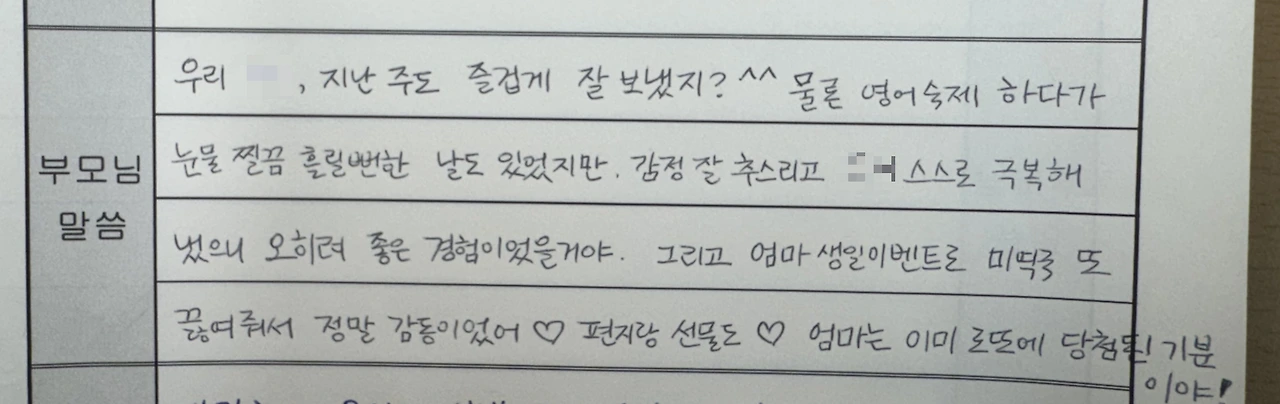 부모님
말씀
우리 , 지난 주도 즐겁게 잘 보냈지? ^^ 물론 영어숙제 하다가
눈물 찔끔 흘릴뻔한 날도 있었지만. 감정 잘 추스리고 스스로 극복해
냈으니 오히려 좋은 경험이었을거야. 그리고 엄마 생일이벤트로 미역국 또
끓여줘서 정말 감동이었어 ♡ 편지랑 선물도 ♡ 엄마는 이미 로또에 당첨된 기분
이야!